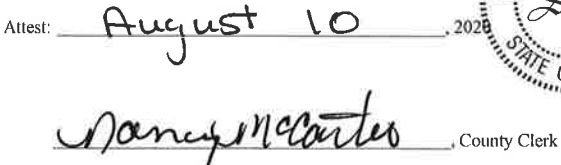 Attest: August 10, 202
STATE
Nancy McCarter, County Clerk